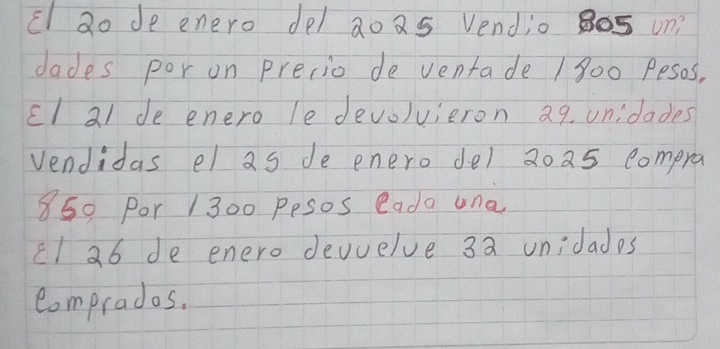 El 20 de enero del 2025 Vendio 805 uni
dades por un Precio de venta de 1800 Pesos.
El 21 de enero le devolvieron 29. unidades
vendidas el 25 de enero del 2025 compra
850 Por 1300 Pesos cada una.
El 26 de enero devuelve 32 unidades
compradas.